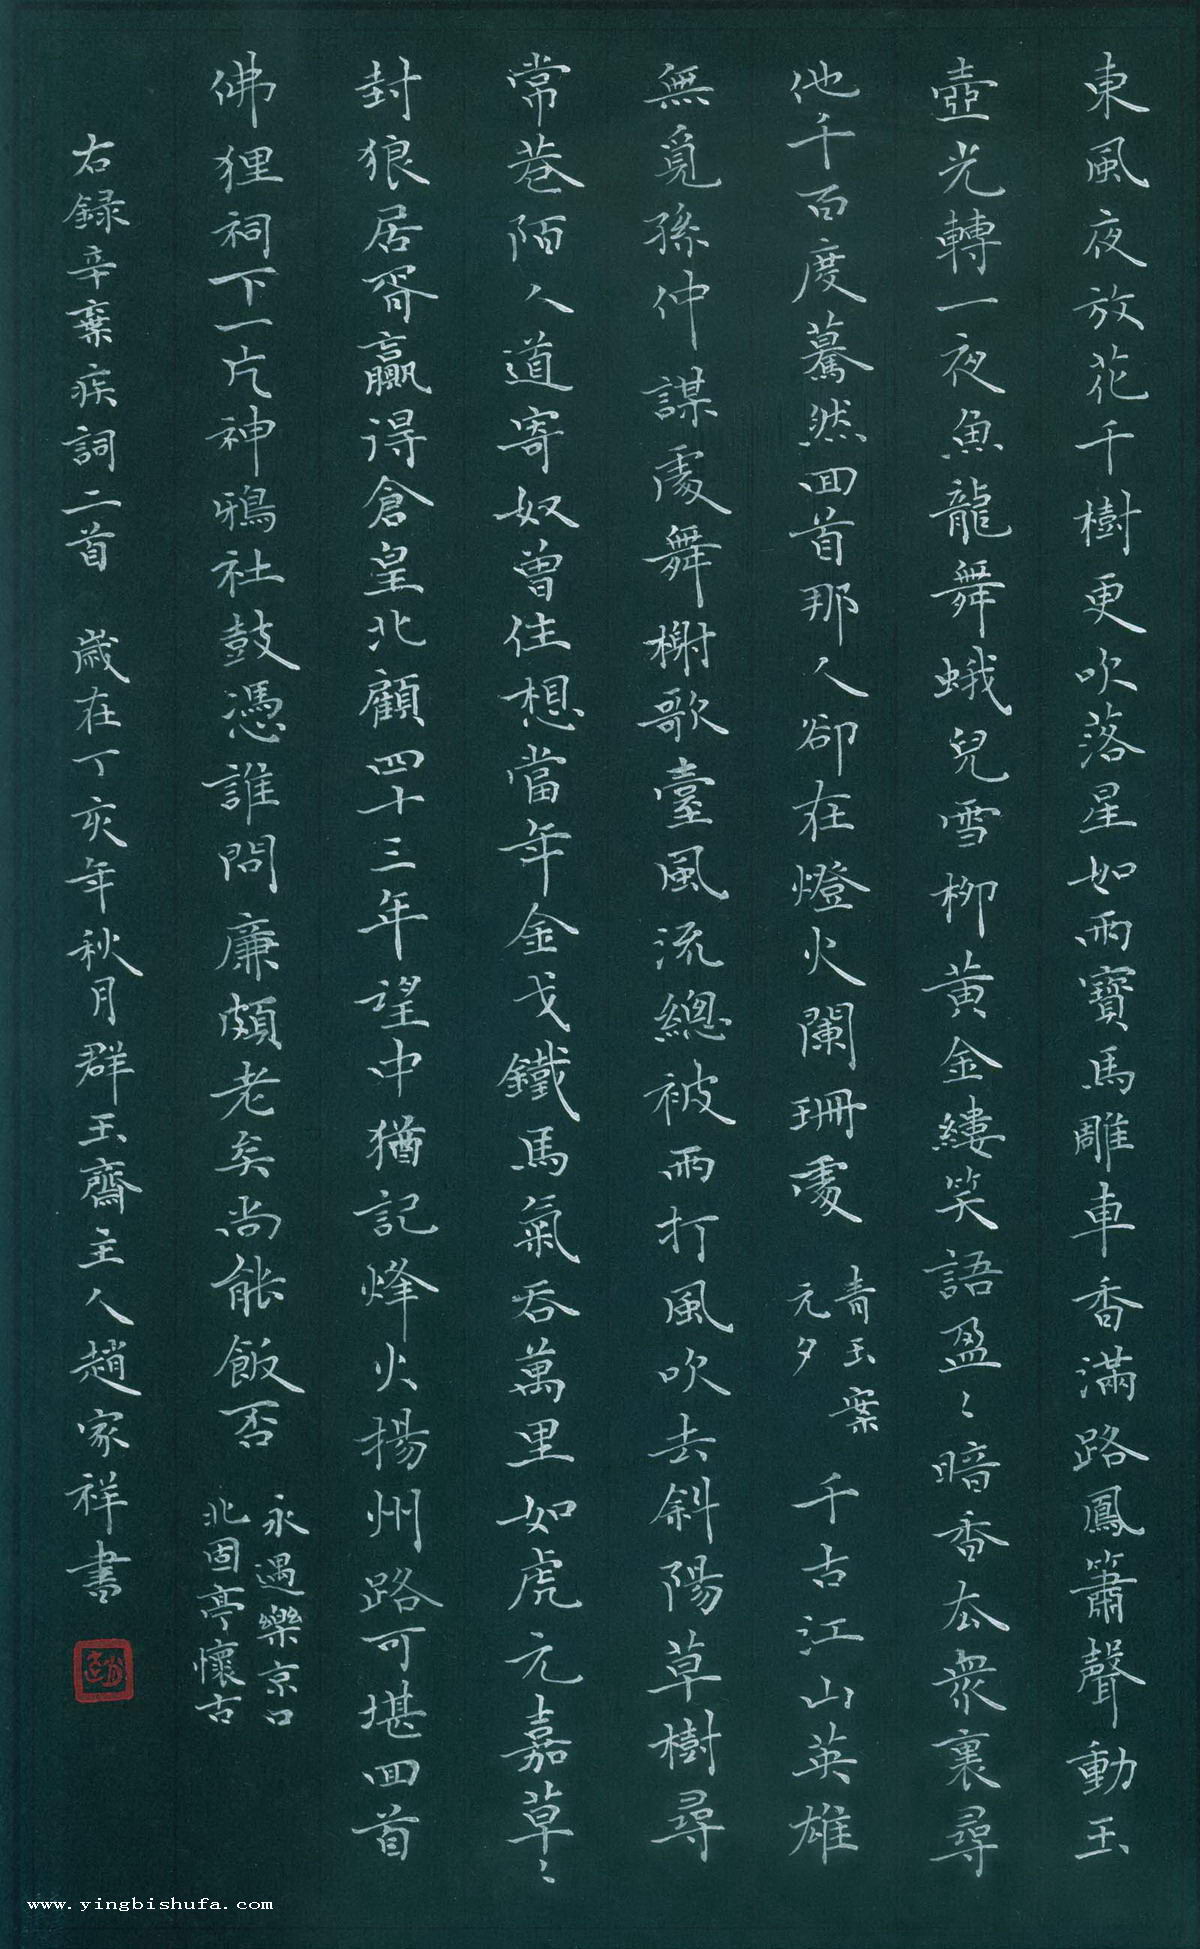 東風夜放花千樹更吹落星如雨寶馬雕車香滿路鳳簫聲動玉
壺光轉一夜魚龍舞蛾兒雪柳黃金縷笑語盈〻暗香厺衆裏尋
他千百度驀然回首那人卻在燈火闌珊處
青玉案
元夕
千古江山英雄
無覓孫仲謀處舞榭歌臺風流總被雨打風吹去斜陽草樹尋
常巷陌人道寄奴曾住想當年金戈鐵馬氣吞萬里如虎元嘉草〻
封狼居胥贏得倉皇北顧四十三年望中猶記烽火揚州路可堪回首
佛狸祠下一片神鴉社鼓憑誰問廉頗老矣尚能飯否
永遇樂京口
北固亭懷古
右録辛棄疾詞二首 歲在丁亥年秋月群玉齋主人趙家祥書
www.yingbishufa.com